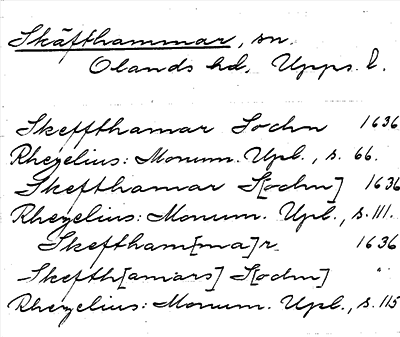 Skäfthammar, sn.
Olands hd, Upps. l.
Skeffthamar Sochn 1636
Rhezelius: Monum. Upl., s. 66.
Skefthamar S[ochn] 1636
Rhezelius: Monum. Upl., s. 111.
Skeftham[ma]r 1636
Skefth[amars] S[ochn] "
Rhezelius: Monum. Upl., s. 115